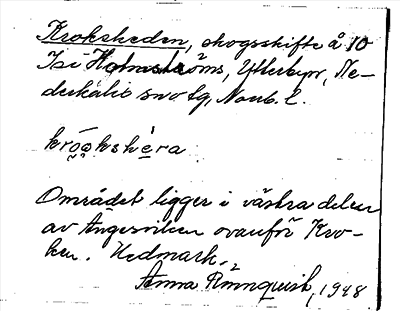 Krokskeden, skogsskifte å 10
I si Holmströms, Ytterbyn, Ne-
derkalix sn o tg, Norrb. l.
krọ̄ạkshẹ̀ra
Området ligger i västra delen
av Ångesviken ovanför Kro-
ken. Hedmark.
Anna Rönnquist, 1948